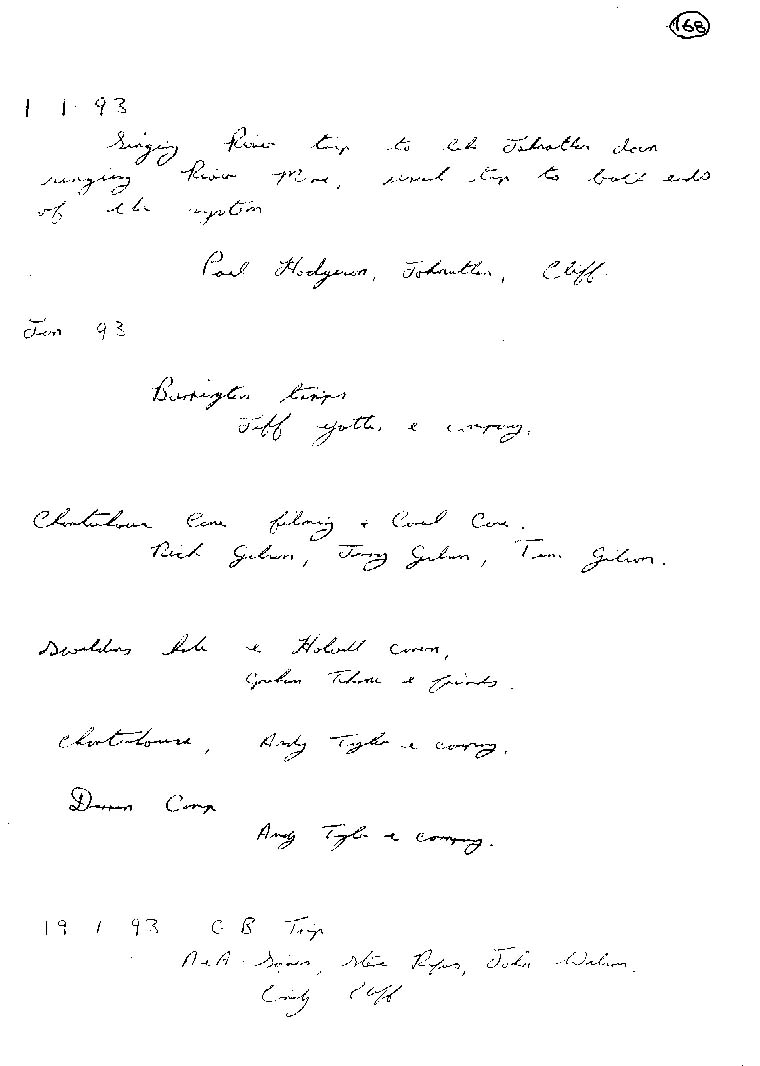 168
1 1. 93
Singing River trip to take Johnathon down
singing River Mine, usual trip to both ends
of the system
Paul Hodgson, Johnathon, Cliff.
Jan 93
Burrington trips
Jeff & company.
Charterhouse Cave filming + Coral Cave.
Rich Gibson, Jerry Gibson, Tim Gibson.
Swildons hole & Holwell cavern,
Graham & friends.
Charterhouse, Andy Tyler & company.
Andy Tyler & company.
19 1 93 C B Trip
R & A. Steve John Wilson.
Cindy Cliff